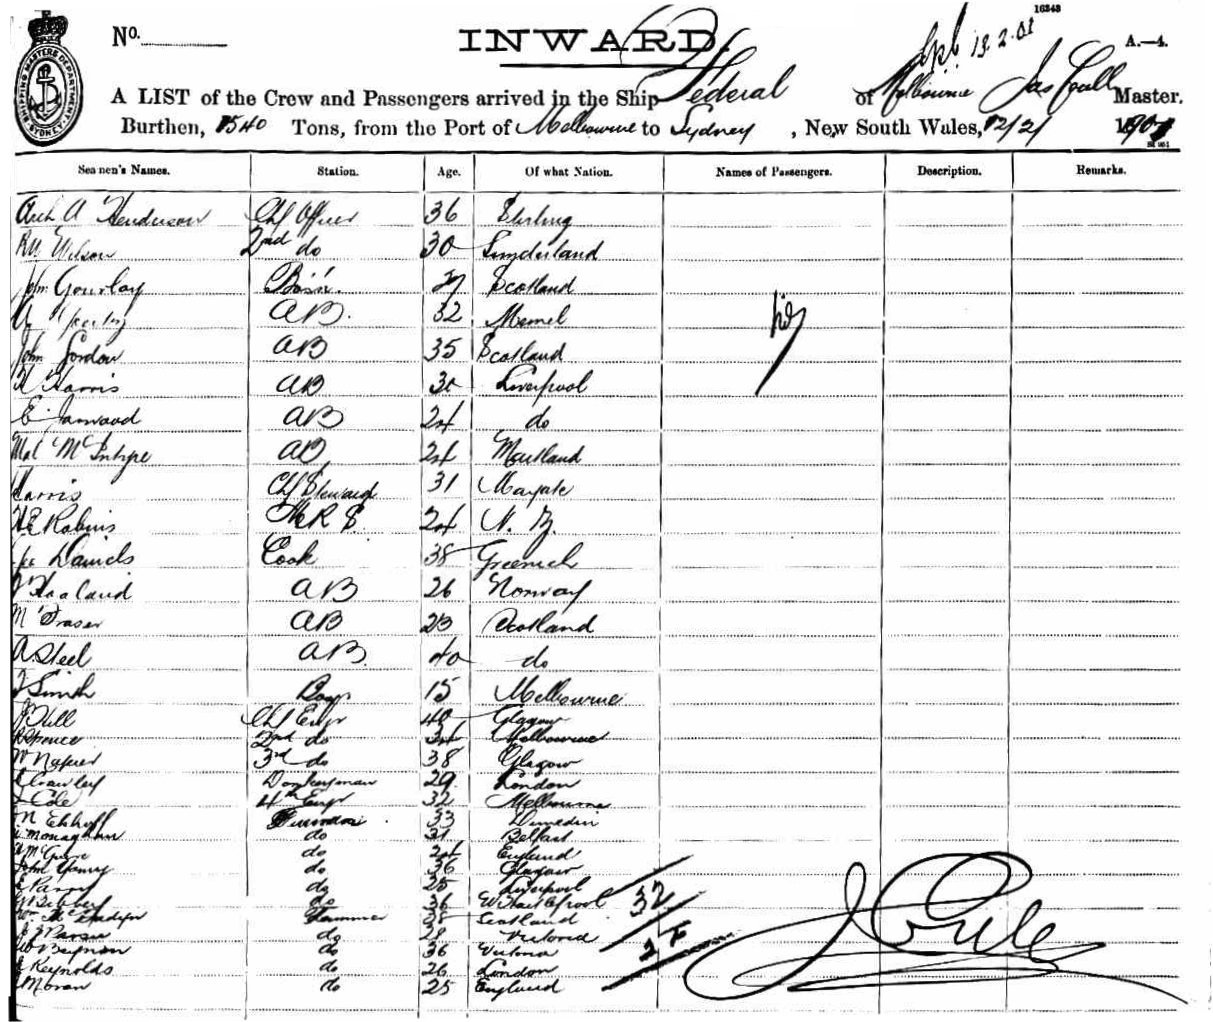 16343
No. INWARD. 13.2.01 A.—4.
A LIST of the Crew and Passengers arrived in the Ship Federal of Melbourne Jas Master.
Burthen, Tons, from the Port of Melbourne to Sydney, New South Wales, 12/2/ 1901
Seamen's Names. Station. Age. Of what Nation. Names of Passengers. Description. Remarks.
Arch A Henderson Chf Officer 36 Stirling
Wilson 2nd do 30 Sunderland
John Gourlay Bosn. Scotland
A AB. 32 Memel
John Gordon AB 35 Scotland
H Harris AB 30 Liverpool
E Janwood AB 24 do
Mal McIntyre AB 24 Maitland
Harris Chf Steward 31 Margate
Robins S. 24 N. Z.
Daniels Cook 38 Greenich
Haaland AB 26 Norway
M Fraser AB 23 Scotland
A Steel AB. 40 do
J Smith Boy 15 Melbourne
J Bull Chf Engr 40 Glasgow
Spence 2nd do 34 Melbourne
W Napier 3rd do 38 Glasgow
Crawley Donkeyman 29. London
Cole 4th Engr 32 Melbourne
N 33 Dunedin
Monaghan do 31 Belfast
do 24 England
John do 36 Glasgow
Parry do 25 Liverpool
do 36
Wm Trimmer 28 Scotland
do 28 Victoria
Beynon do 36 Victoria
Reynolds do 26 London
Moran do 25 England
32